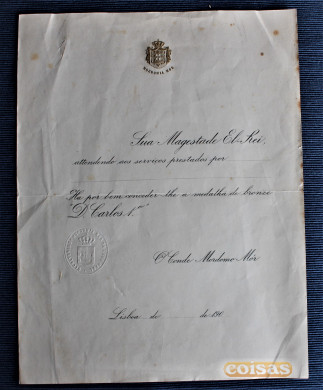 MORDOMIA-MÓR
Sua Magestade El-Rei,
attendendo aos serviços prestados por
Ha por bem conceder-lhe a medalha de bronze
"D. Carlos 1.º"
O Conde Mordomo Mór
Lisboa de de 190
coisas